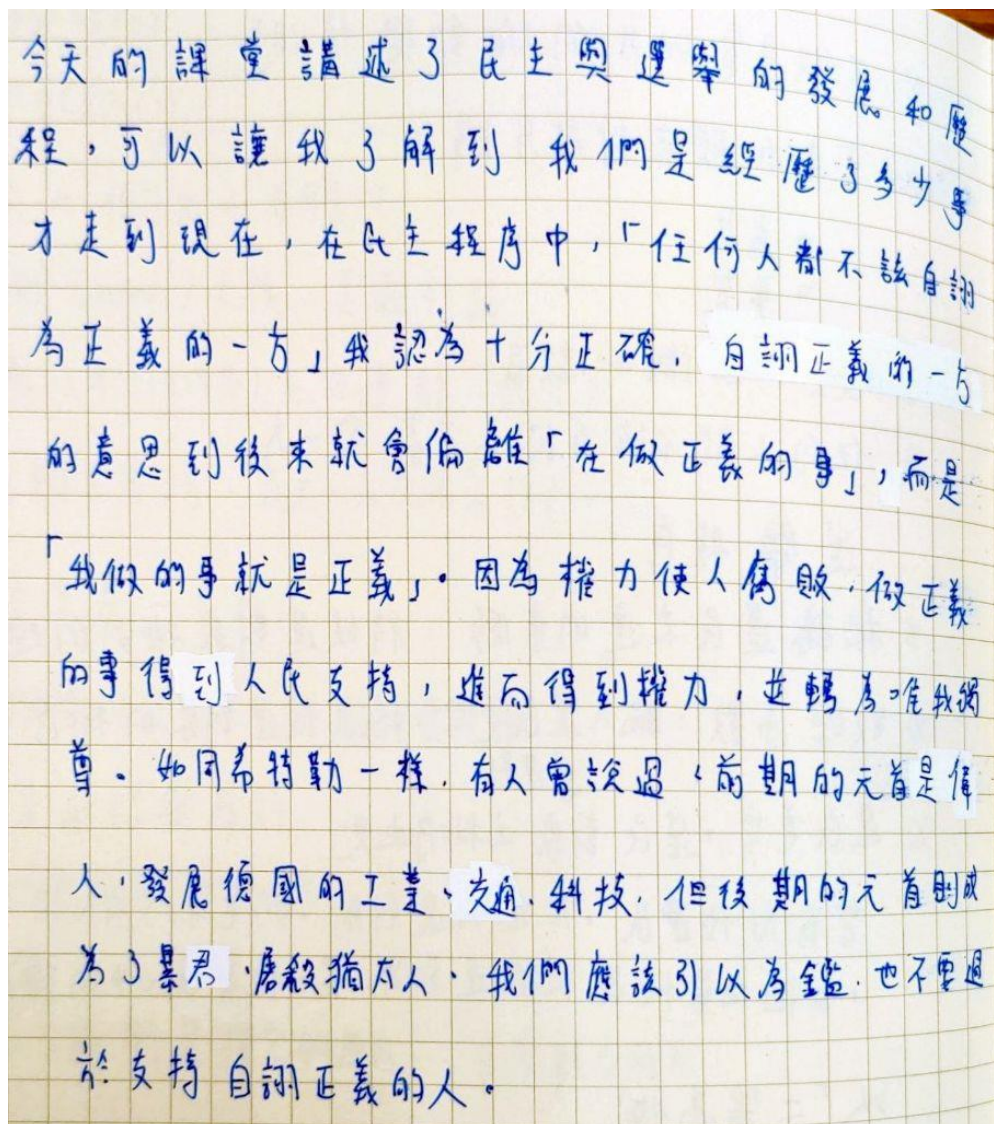 今天的課堂講述了民主與選舉的發展和歷
程，可以讓我了解到我們是經歷了多少事
才走到現在，在民主程序中，「任何人都不該自詡
為正義的一方」我認為十分正確，自詡正義的一方
的意思到後來就會偏離「在做正義的事」，而是
「我做的事就是正義」。因為權力使人腐敗，做正義
的事得到人民支持，進而得到權力，並轉為唯我獨
尊。如同希特勒一樣，有人曾說過，前期的元首是偉
人，發展德國的工業、交通、科技，但後期的元首則成
為了暴君，屠殺猶太人。我們應該引以為鑑，也不要過
於支持自詡正義的人。